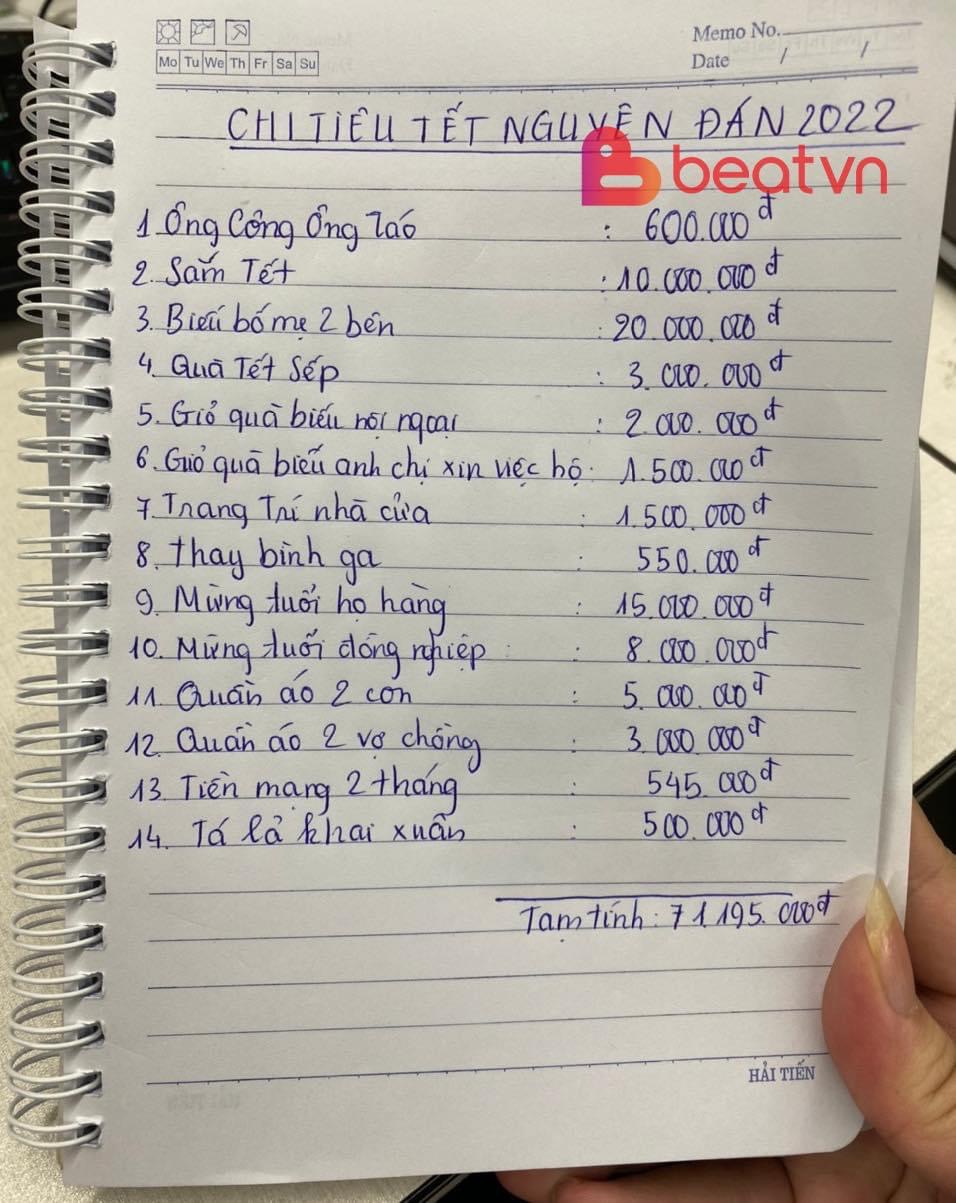 Memo No.
Mo Tu We Th Fr Sa Su
Date / /
CHI TIÊU TẾT NGUYÊN ĐÁN 2022
beatvn
1. Ông Công Ông Táo : 600.000đ
2. Sắm Tết : 10.000.000đ
3. Biếu bố mẹ 2 bên : 20.000.000đ
4. Quà Tết Sếp : 3.000.000đ
5. Giỏ quà biếu nội ngoại : 2.000.000đ
6. Giỏ quà biếu anh chị xin việc hộ : 1.500.000đ
7. Trang Trí nhà cửa : 1.500.000đ
8. Thay bình ga : 550.000đ
9. Mừng tuổi họ hàng : 15.000.000đ
10. Mừng tuổi đồng nghiệp : 8.000.000đ
11. Quần áo 2 con : 5.000.000đ
12. Quần áo 2 vợ chồng : 3.000.000đ
13. Tiền mạng 2 tháng : 545.000đ
14. Tá lả khai xuân : 500.000đ
Tạm tính : 71.195.000đ
HẢI TIẾN